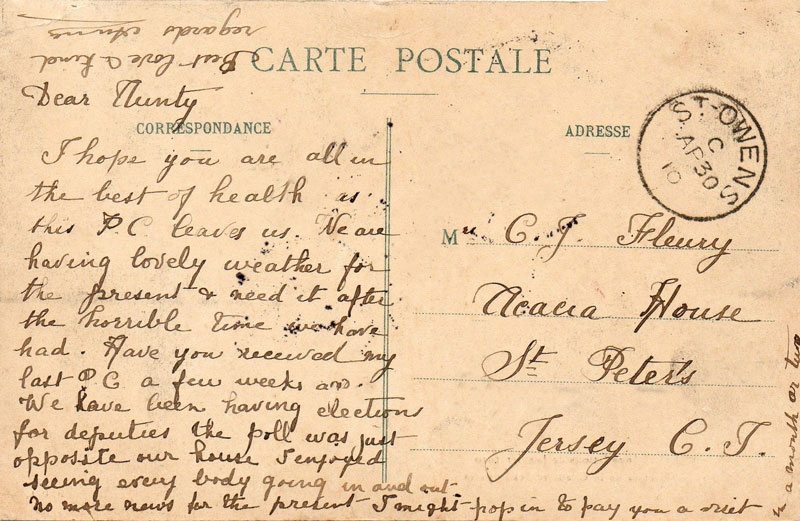 CARTE POSTALE
CORRESPONDANCE
ADRESSE
ST. OWENS
C
AP 30
10
Dear Aunty
I hope you are all in
the best of health as
this P.C leaves us. We are
having lovely weather for
the present & need it after
the horrible time we have
had. Have you received my
last P.C. a few weeks ago.
We have been having elections
for deputies the poll was just
opposite our house I enjoyed
seeing every body going in and out
no more news for the present I might pop in to pay you a visit
in a month or two
Best love & kind
regards
M
C. J. Fleury
Acacia House
St Peter's
Jersey C. I.